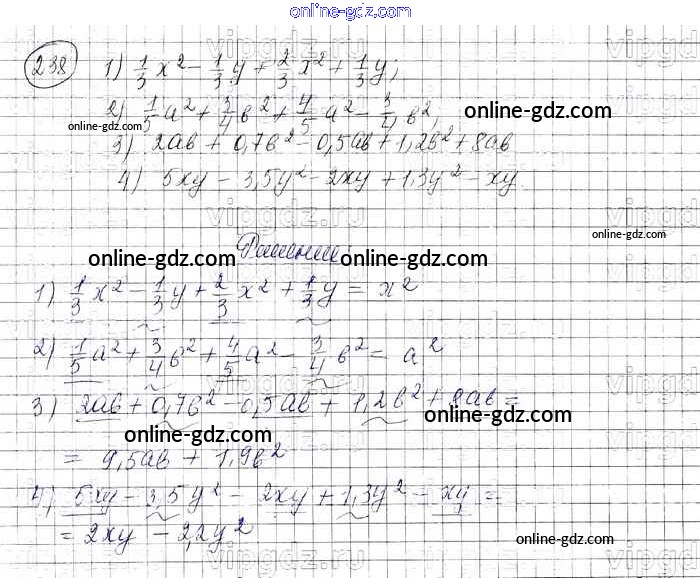 online-gdz.com
238 1) 1/3 x² - 1/3 y + 2/3 x² + 1/3 y;
2) 1/5 a² + 3/4 b² + 4/5 a² - 3/4 b²,
online-gdz.com
online-gdz.com
3) 2ab + 0,7b² - 0,5ab + 1,2b² + 8ab
4) 5xy - 3,5y² - 2xy + 1,3y² - xy.
Решение:
online-gdz.com online-gdz.com
1) 1/3 x² - 1/3 y + 2/3 x² + 1/3 y = x²
2) 1/5 a² + 3/4 b² + 4/5 a² - 3/4 b² = a²
3) 2ab + 0,7b² - 0,5ab + 1,2b² + 8ab =
online-gdz.com
online-gdz.com
= 9,5ab + 1,9b²
4) 5xy - 3,5y² - 2xy + 1,3y² - xy =
= 2xy - 2,2y²
online-gdz.com
online-gdz.com
vipgdz.ru